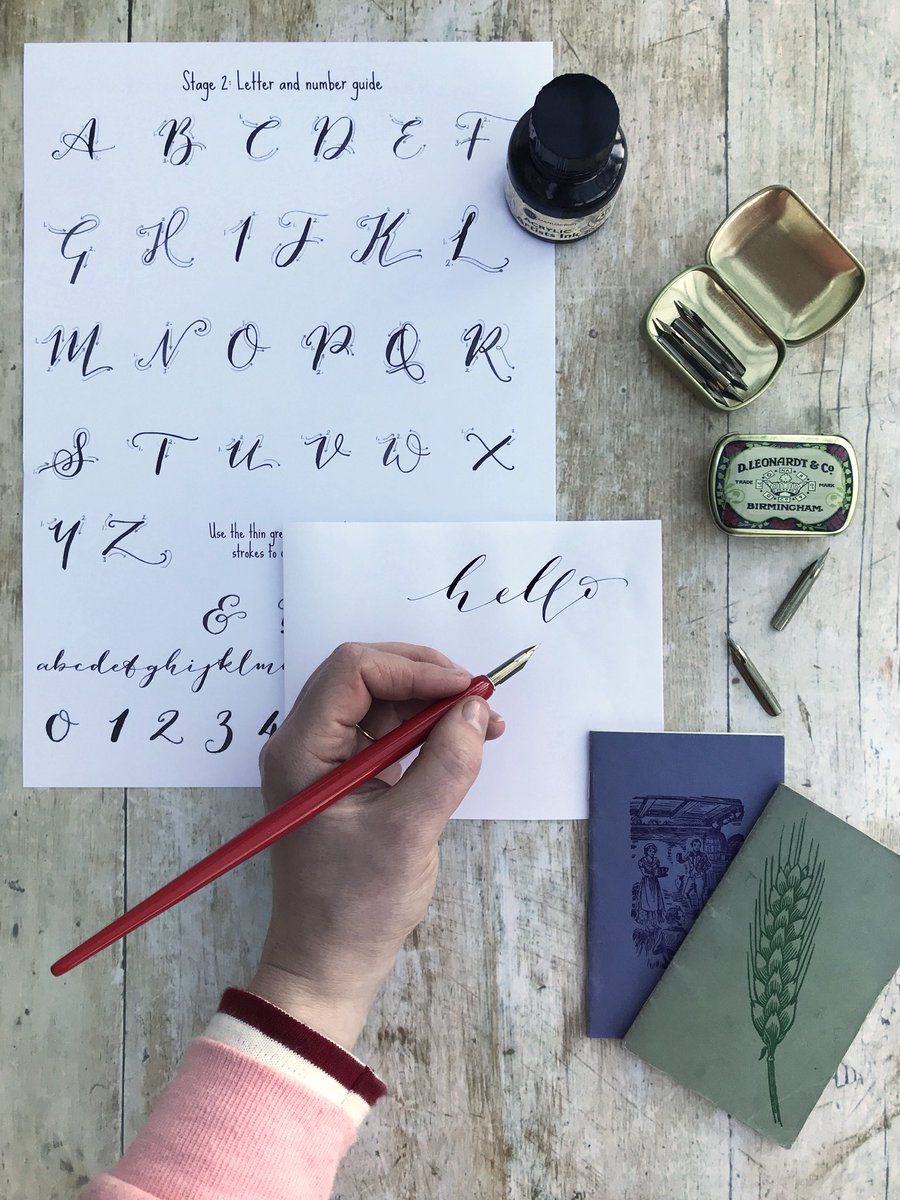 Stage 2: Letter and number guide
A B C D E F
G H I J K L
M N O P Q R
S T U V W X
Y Z
Use the thin
strokes to
&
abcdefghijklm
0 1 2 3 4
hello
ACRYLIC
Artists Ink
D. LEONARDT & Co.
TRADE MARK
BIRMINGHAM.